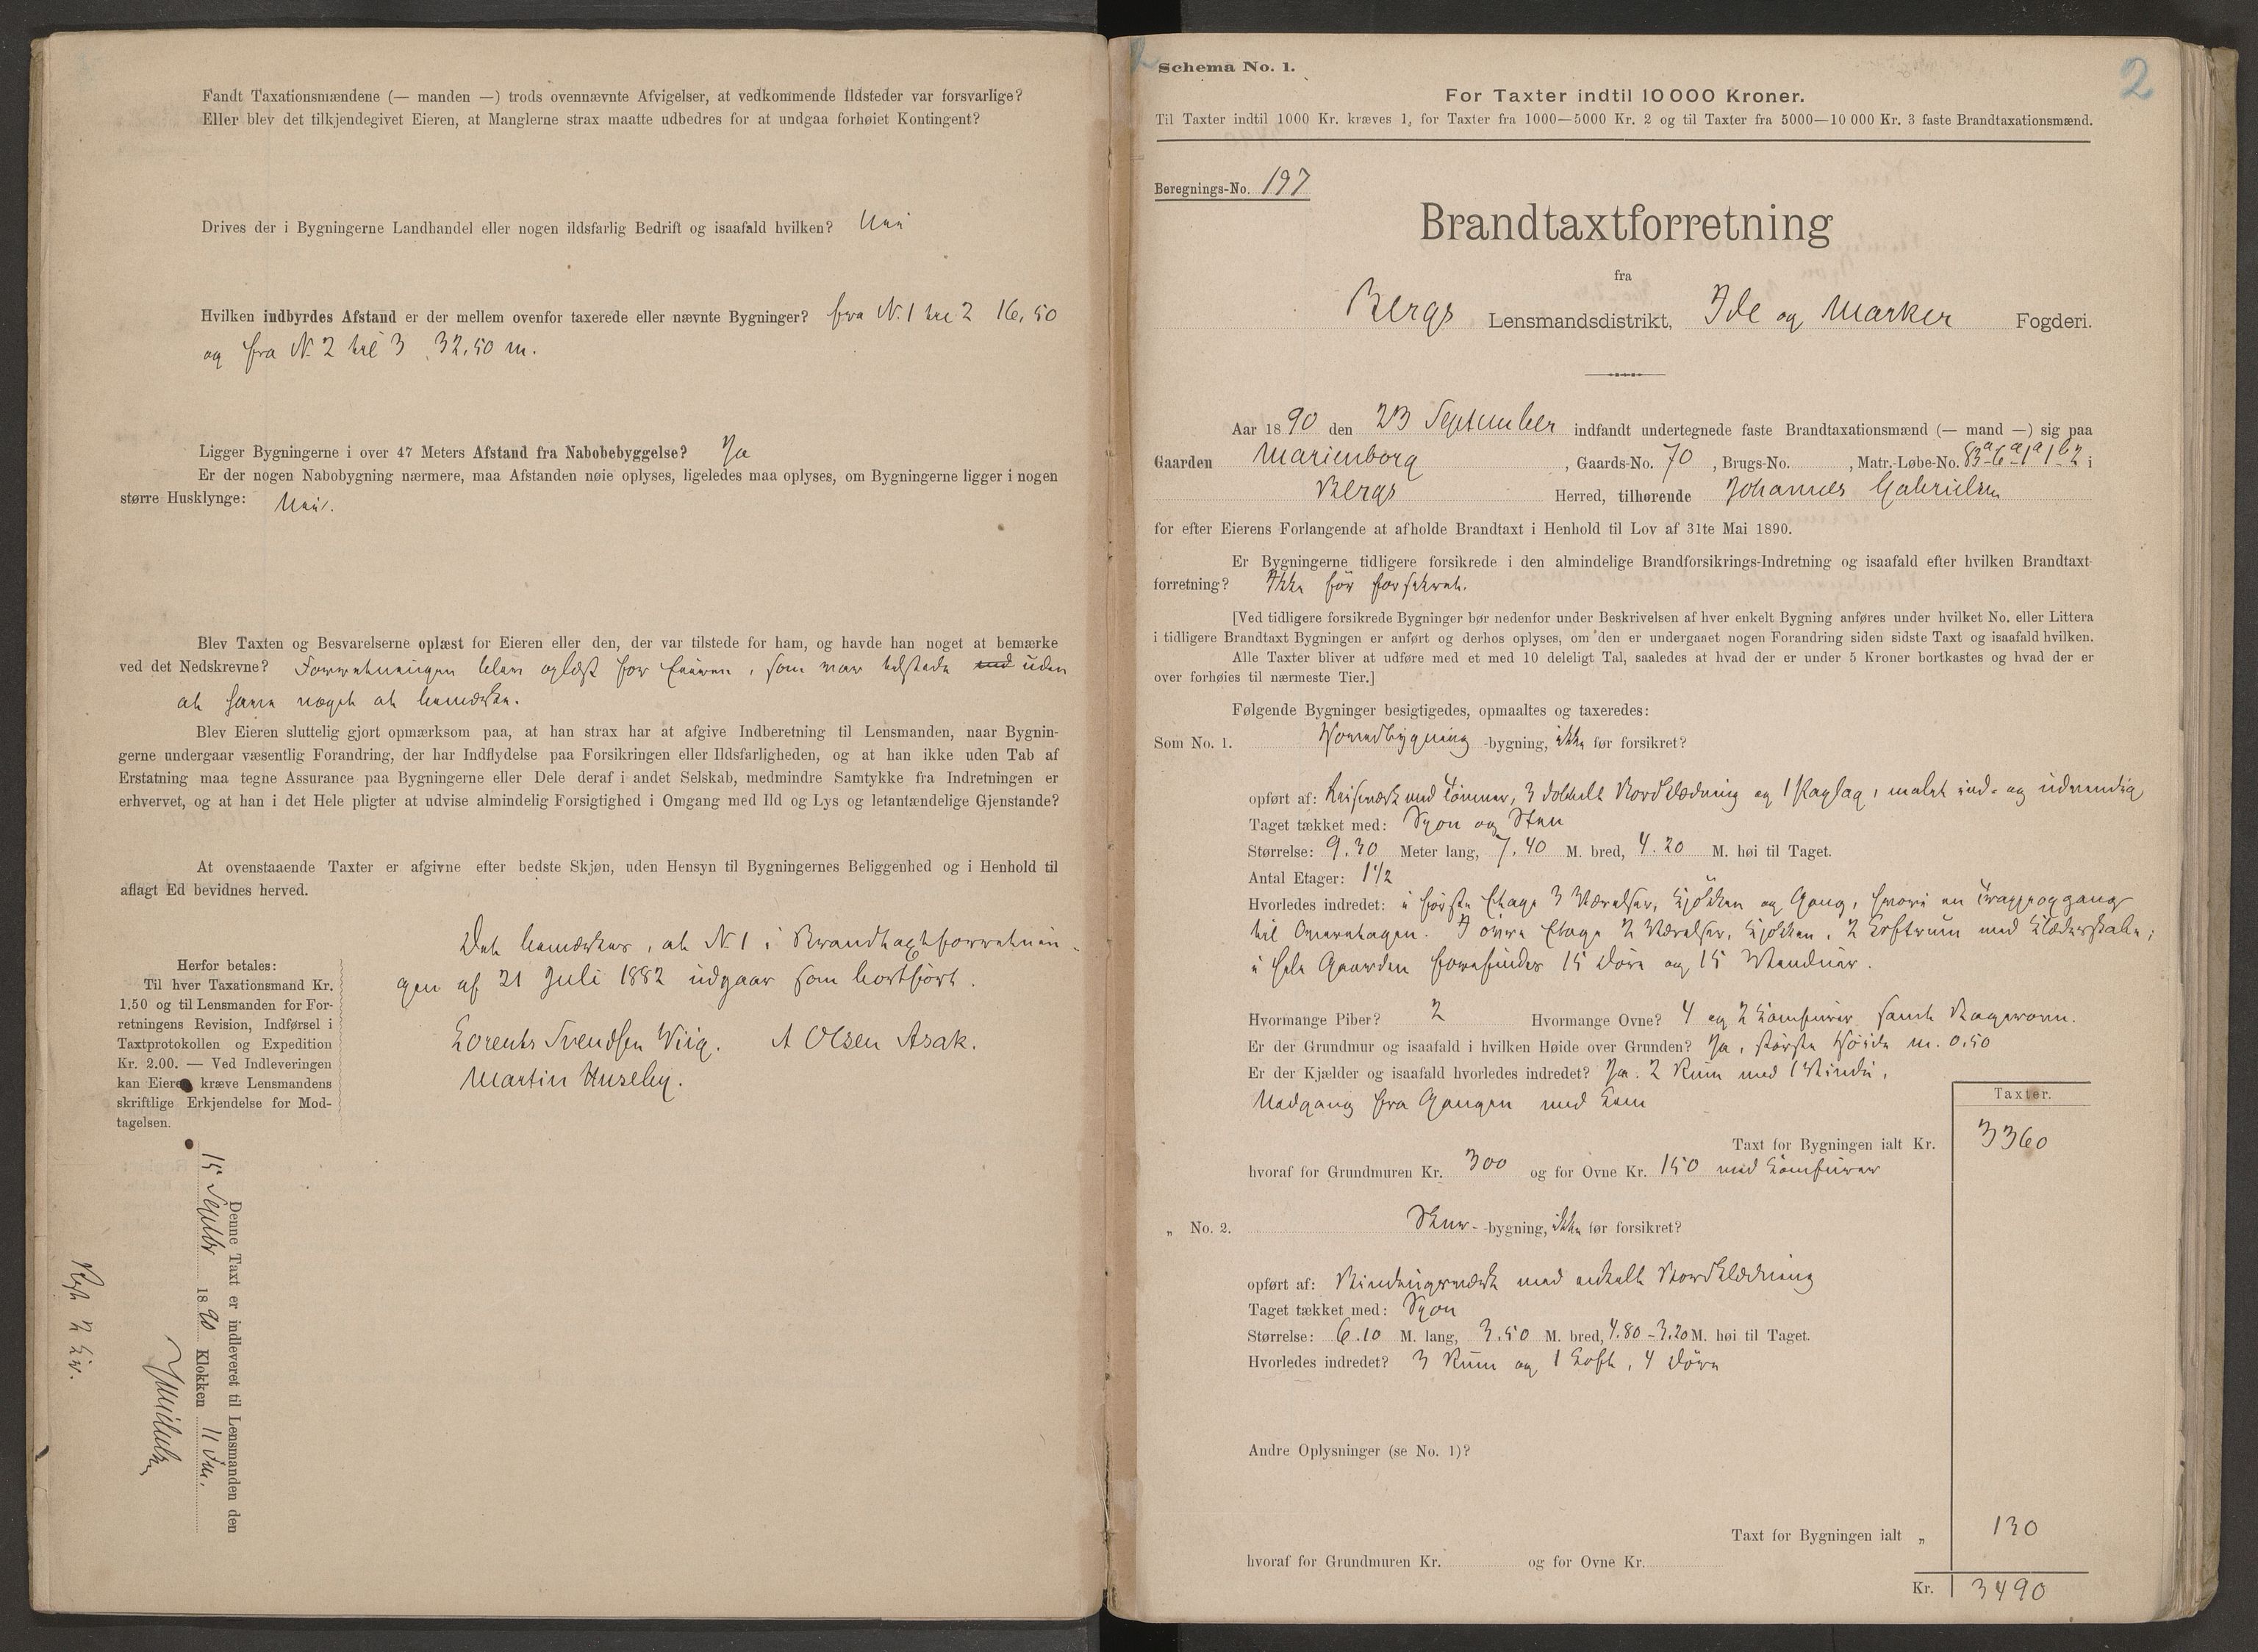 Fandt Taxationsmændene (— manden —) trods ovennævnte Afvigelser, at vedkommende Ildsteder var forsvarlige?
Eller blev det tilkjendegivet Eieren, at Manglerne strax maatte udbedres for at undgaa forhøiet Kontingent?
Drives der i Bygningerne Landhandel eller nogen ildsfarlig Bedrift og isaafald hvilken? Nei
Hvilken indbyrdes Afstand er der mellem ovenfor taxerede eller nævnte Bygninger? fra N. 1 til 2 16,50
og fra N. 2 til 3 32,50 m.
Ligger Bygningerne i over 47 Meters Afstand fra Nabobebyggelse? Ja
Er der nogen Nabobygning nærmere, maa Afstanden nøie oplyses, ligeledes maa oplyses, om Bygningerne ligger i nogen
større Husklynge: Nei.
Blev Taxten og Besvarelserne oplæst for Eieren eller den, der var tilstede for ham, og havde han noget at bemærke
ved det Nedskrevne? Forretningen blev oplæst for Eieren, som var tilstede uden
at have noget at bemærke.
Blev Eieren sluttelig gjort opmærksom paa, at han strax har at afgive Indberetning til Lensmanden, naar Bygnin-
gerne undergaar væsentlig Forandring, der har Indflydelse paa Forsikringen eller Ildsfarligheden, og at han ikke uden Tab af
Erstatning maa tegne Assurance paa Bygningerne eller Dele deraf i andet Selskab, medmindre Samtykke fra Indretningen er
erhvervet, og at han i det Hele pligter at udvise almindelig Forsigtighed i Omgang med Ild og Lys og letantændelige Gjenstande?
At ovenstaaende Taxter er afgivne efter bedste Skjøn, uden Hensyn til Bygningernes Beliggenhed og i Henhold til
aflagt Ed bevidnes herved.
Det bemærkes, at N. 1 i Brandtaxtforretnin-
gen af 21 Juli 1882 udgaar som bortført.
Lorents Svendsen Wiig. A Olsen Asak.
Martin Huseby.
Herfor betales:
Til hver Taxationsmand Kr.
1.50 og til Lensmanden for For-
retningens Revision, Indførsel i
Taxtprotokollen og Expedition
Kr. 2.00. — Ved Indleveringen
kan Eieren kræve Lensmandens
skriftlige Erkjendelse for Mod-
tagelsen.
Denne Taxt er indleveret til Lensmanden den
15 Septbr 1890 Klokken 11 Fm.
2 Kr.
Schema No. 1.
2
For Taxter indtil 10 000 Kroner.
Til Taxter indtil 1000 Kr. kræves 1, for Taxter fra 1000—5000 Kr. 2 og til Taxter fra 5000—10 000 Kr. 3 faste Brandtaxationsmænd.
Beregnings-No. 197
Brandtaxtforretning
fra
Bergs Lensmandsdistrikt, Ide og Marker Fogderi.
Aar 1890 den 23 September indfandt undertegnede faste Brandtaxationsmænd (— mand —) sig paa
Gaarden Marienborg, Gaards-No. 70, Brugs-No. , Matr.-Løbe-No. 83a 6a 1a 1b 2 i
Bergs Herred, tilhørende Johannes Gabrielsen
for efter Eierens Forlangende at afholde Brandtaxt i Henhold til Lov af 31te Mai 1890.
Er Bygningerne tidligere forsikrede i den almindelige Brandforsikrings-Indretning og isaafald efter hvilken Brandtaxt-
forretning? Ikke før forsikret.
[Ved tidligere forsikrede Bygninger bør nedenfor under Beskrivelsen af hver enkelt Bygning anføres under hvilket No. eller Littera
i tidligere Brandtaxt Bygningen er anført og derhos oplyses, om den er undergaaet nogen Forandring siden sidste Taxt og isaafald hvilken.
Alle Taxter bliver at udføre med et med 10 deleligt Tal, saaledes at hvad der er under 5 Kroner bortkastes og hvad der er
over forhøies til nærmeste Tier.]
Følgende Bygninger besigtigedes, opmaaltes og taxeredes:
Som No. 1. Hovedbygning -bygning, ikke før forsikret?
opført af: Reisværk med Tømmer, 3 dobbelt Bordklædning og 1 Paplag, malet ind- og udvendig
Taget tækket med: Spon og Sten
Størrelse: 9.30 Meter lang, 7.40 M. bred, 4.20 M. høi til Taget.
Antal Etager: 1 1/2
Hvorledes indredet: i første Etage 3 Værelser, Kjøkken og Gang, hvori en Trappeopgang
til Overetagen. I øvre Etage 2 Værelser, Kjøkken, 2 Loftrum med Klæderskabe;
i hele Gaarden forefindes 15 Døre og 15 Vinduer.
Hvormange Piber? 2 Hvormange Ovne? 4 og 2 Komfurer samt Bagerovn.
Er der Grundmur og isaafald i hvilken Høide over Grunden? Ja, største Høide m. 0,50
Er der Kjælder og isaafald hvorledes indredet? Ja. 2 Rum med 1 Vindu,
Nedgang fra Gangen med Lem
Taxter.
Taxt for Bygningen ialt Kr. 3360
hvoraf for Grundmuren Kr. 300 og for Ovne Kr. 150 med Komfurer
„ No. 2. Skur- -bygning, ikke før forsikret?
opført af: Bindingsværk med enkelt Bordklædning
Taget tækket med: Spon
Størrelse: 6.10 M. lang, 3.50 M. bred, 4.80 - 3.20 M. høi til Taget.
Hvorledes indredet? 3 Rum og 1 Loft, 4 Døre
Andre Oplysninger (se No. 1)?
Taxt for Bygningen ialt „ 130
hvoraf for Grundmuren Kr. og for Ovne Kr.
Kr. 3490